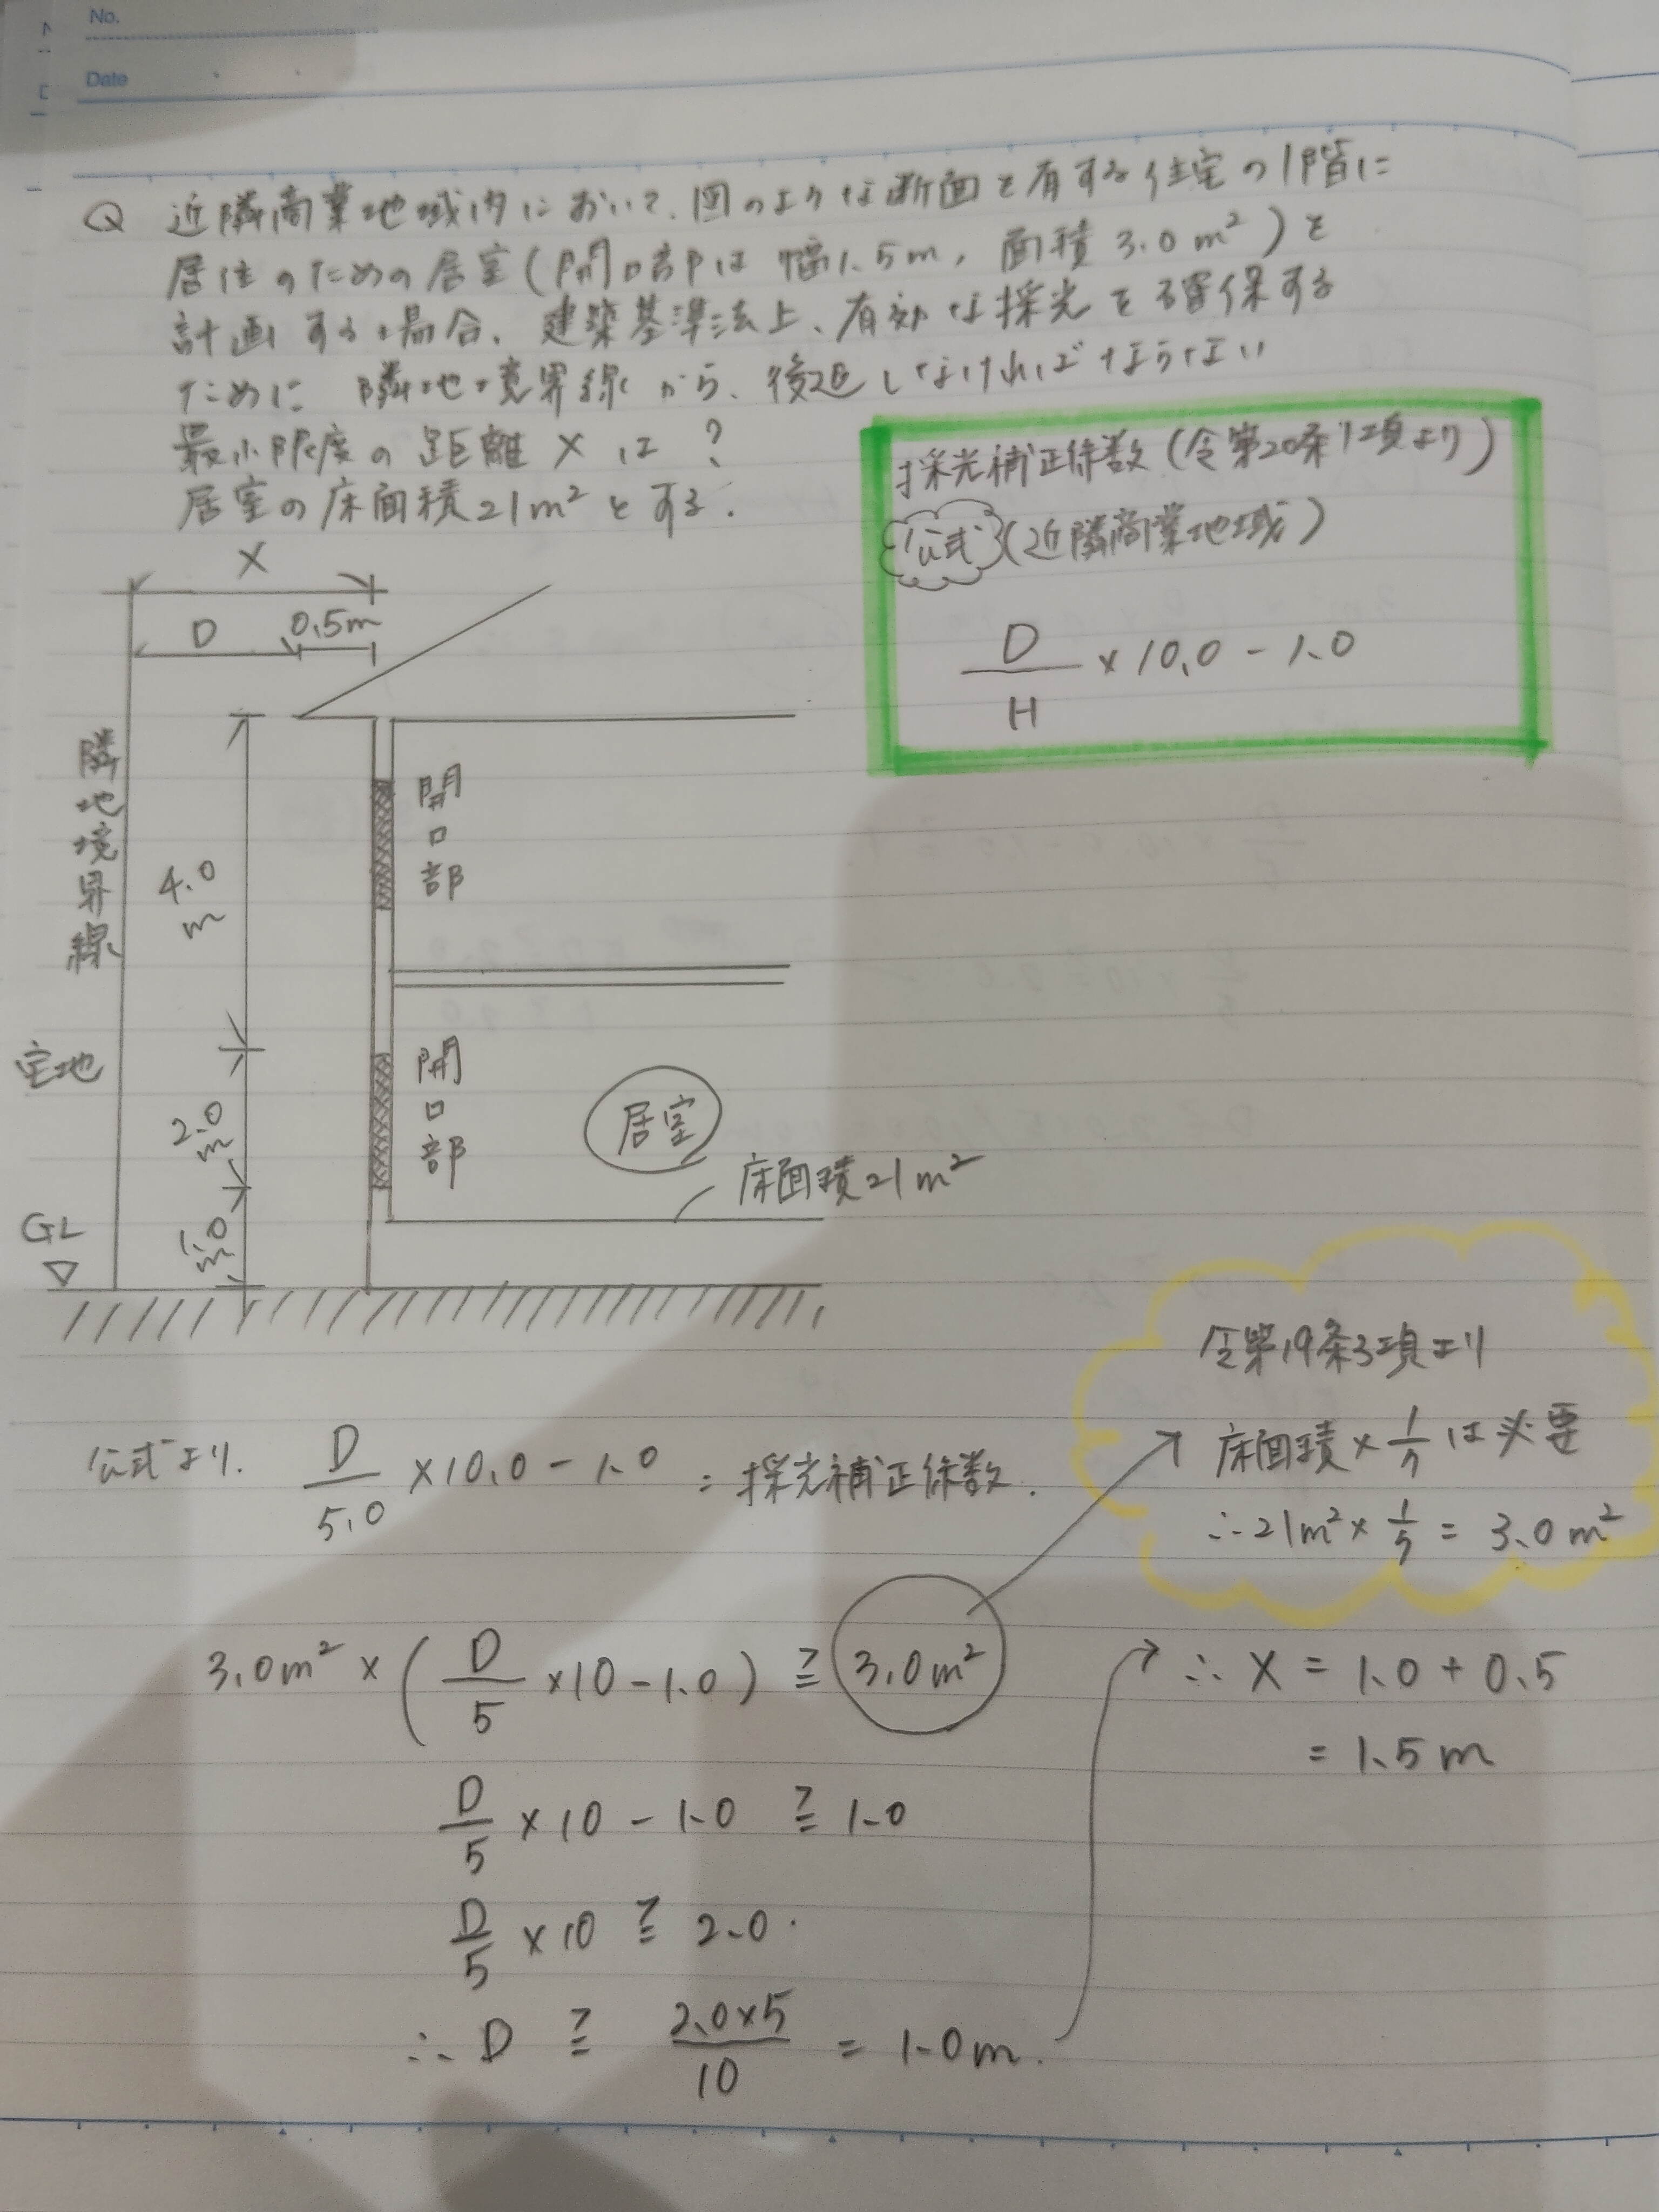 No.
Date
Q 近隣商業地域内において、図のような断面を有する住宅の1階に
居住のための居室(開口部は 幅1.5m, 面積 3.0m²)を
計画する場合、建築基準法上、有効な採光を確保する
ために 隣地境界線から、後退しなければならない
最小限度の距離 X は ?
居室の床面積21m²とする.
採光補正係数(令第20条1項より)
公式(近隣商業地域)
D/H × 10.0 - 1.0
X
D
0.5m
隣地境界線
4.0m
開口部
宅地
2.0m
開口部
居室
床面積21m²
1.0m
GL
令第19条3項より
床面積×1/7は必要
∴21m²×1/7 = 3.0m²
公式より. D/5.0 ×10.0 - 1.0 = 採光補正係数.
3.0m² × (D/5 ×10 - 1.0) ≧ 3.0m²
D/5 × 10 - 1.0 ≧ 1.0
D/5 × 10 ≧ 2.0.
∴ D ≧ 2.0×5/10 = 1.0m.
∴ X = 1.0 + 0.5
= 1.5m